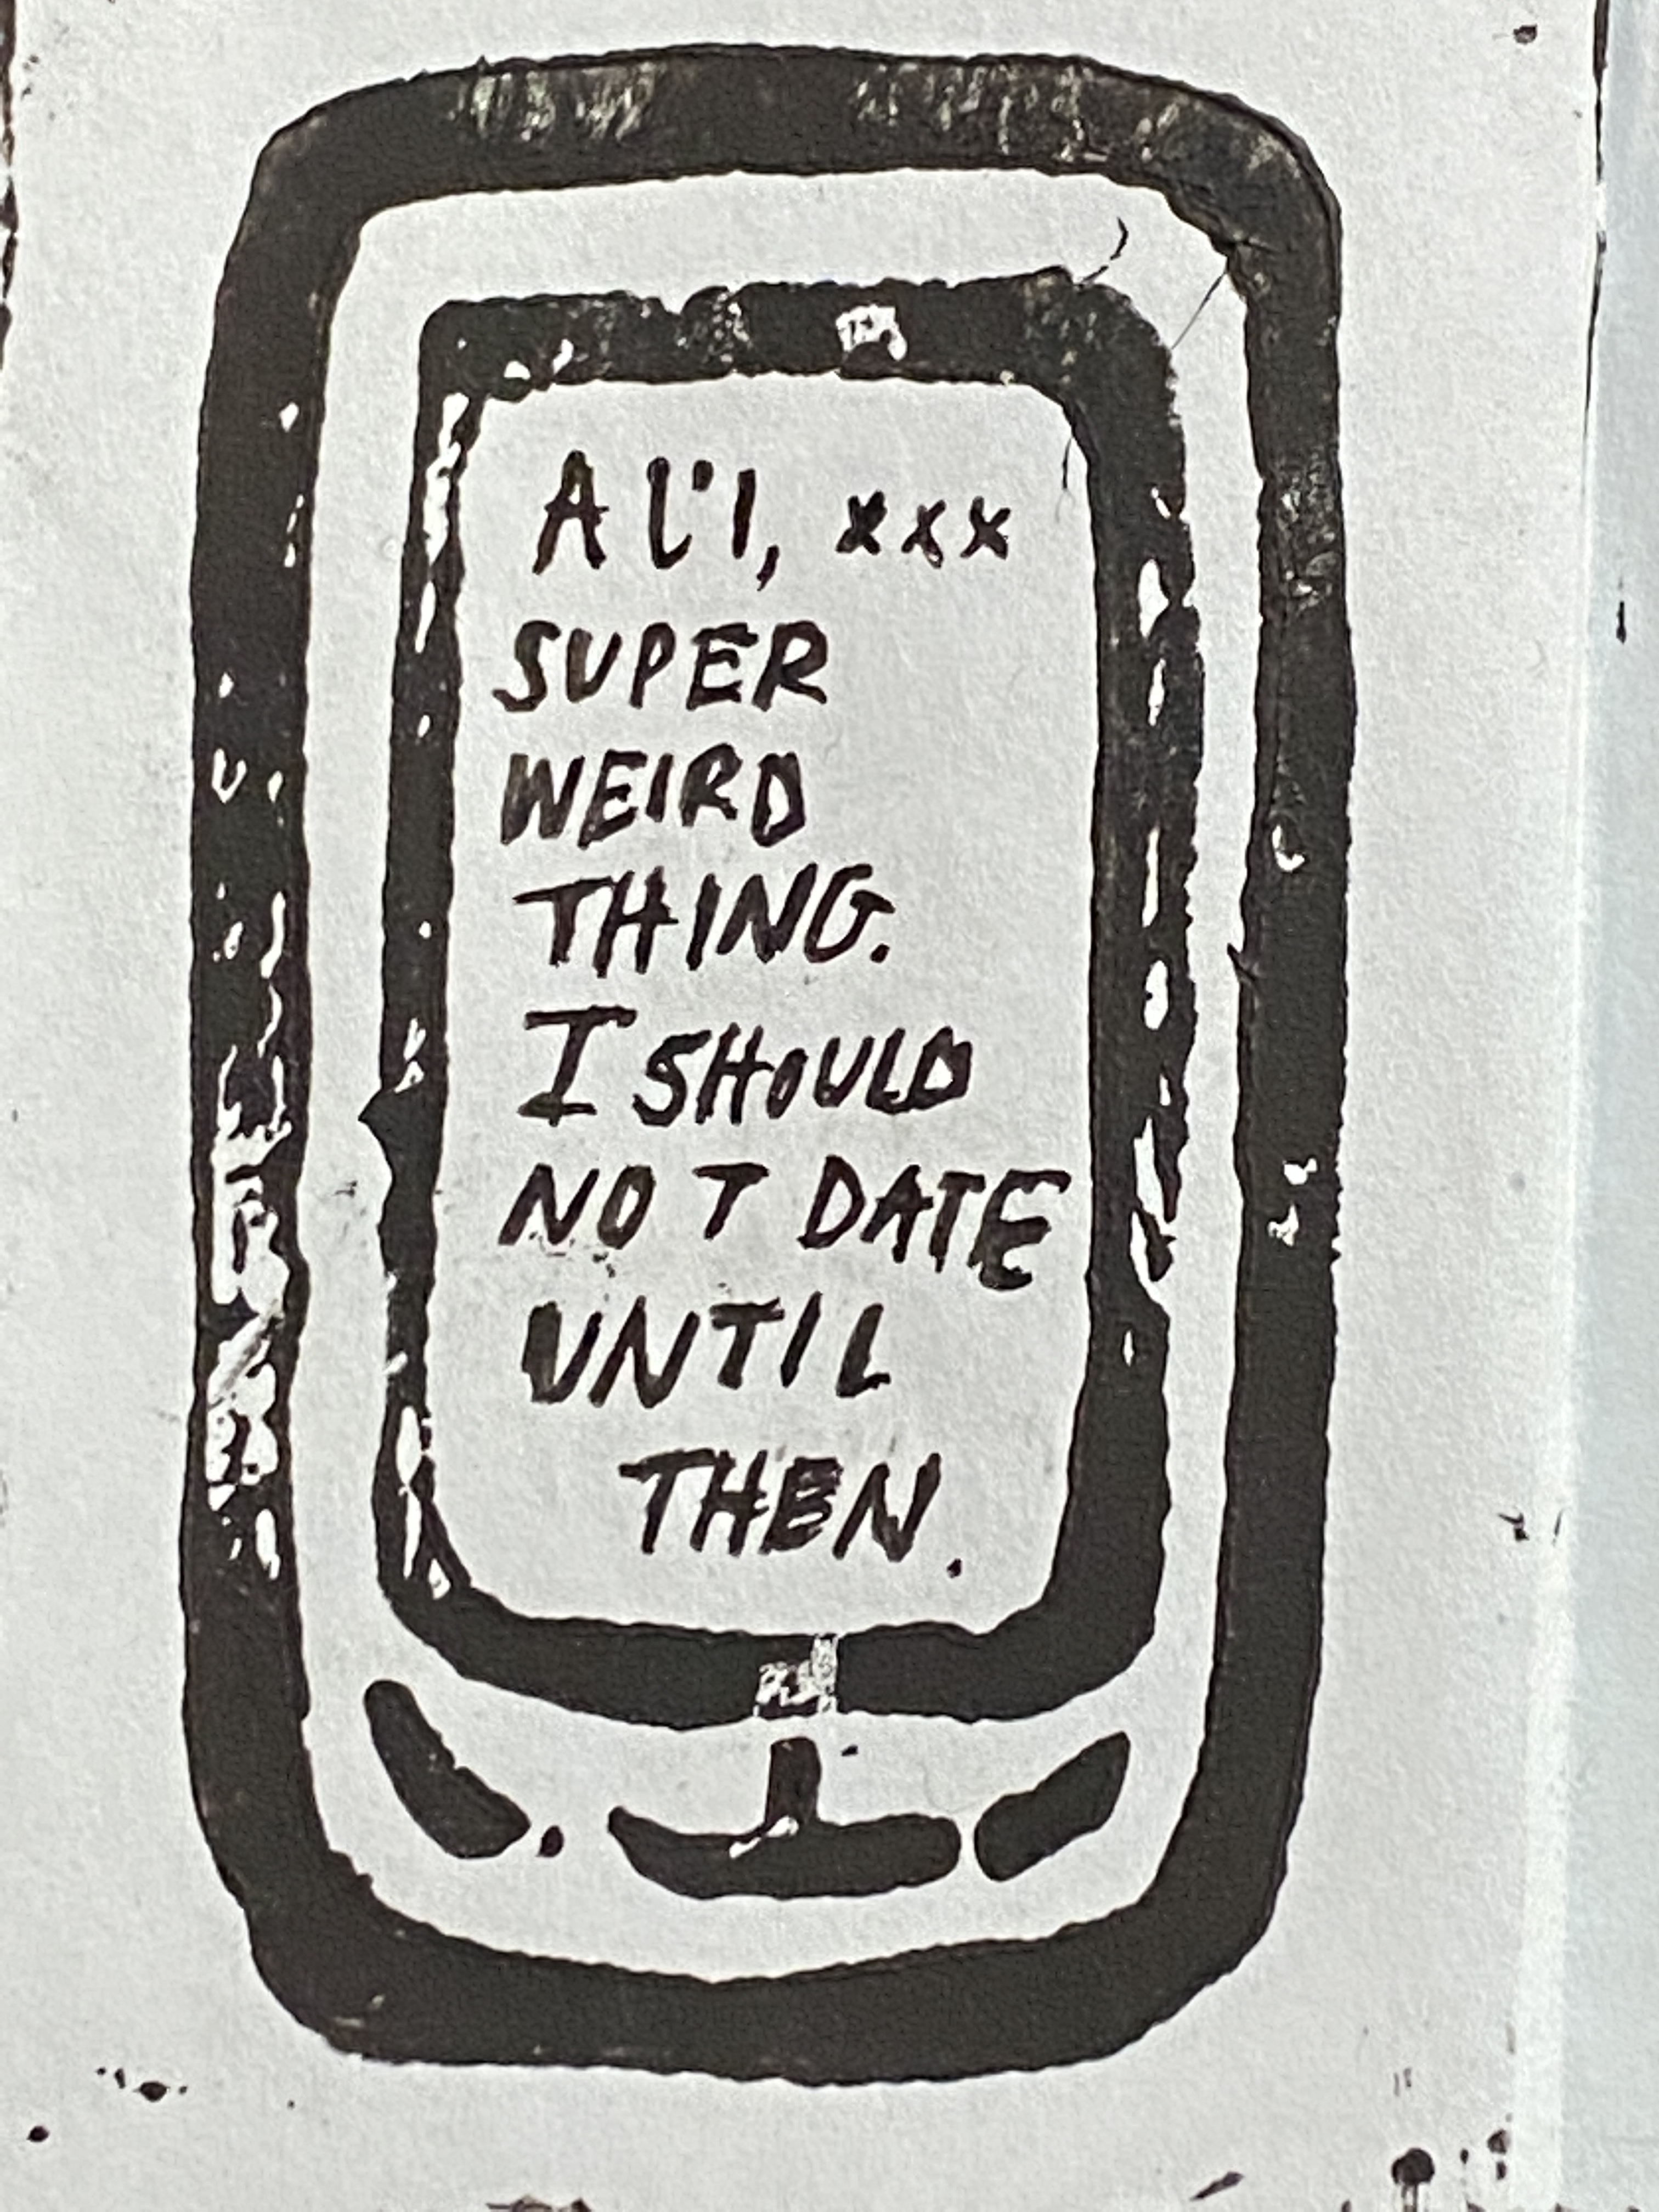 A L'I, xxx
SUPER
WEIRD
THING.
I SHOULD
NOT DATE
UNTIL
THEN.